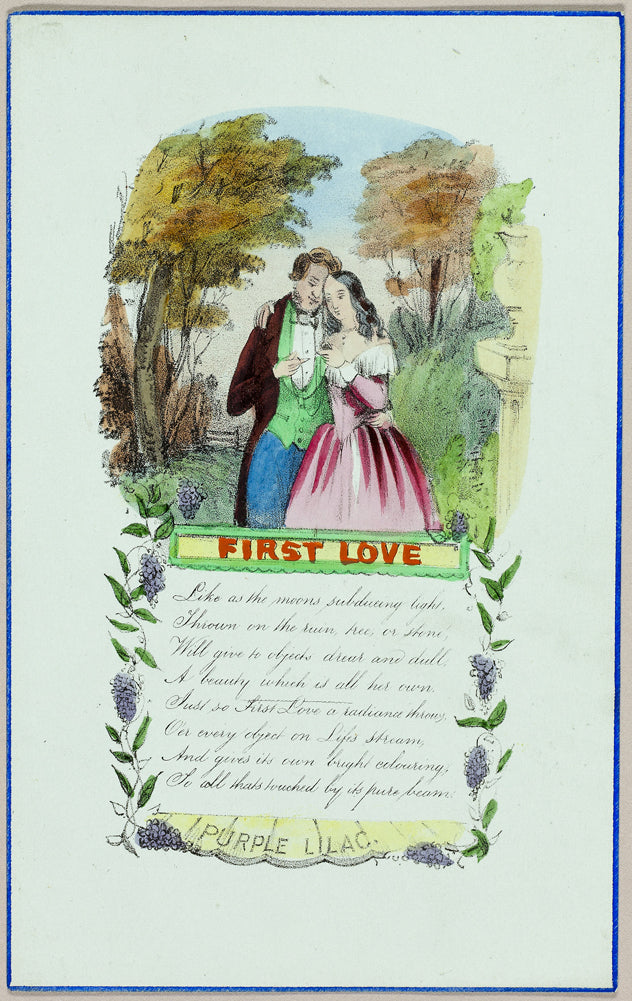 FIRST LOVE
Like as the moons subduing light,
Thrown on the ruin, tree, or stone,
Will give to objects drear and dull,
A beauty which is all her own.
Just so First Love a radiance throws,
O'er every object on Life's stream,
And gives its own bright colouring,
To all thats touched by its pure beam.
PURPLE LILAC.